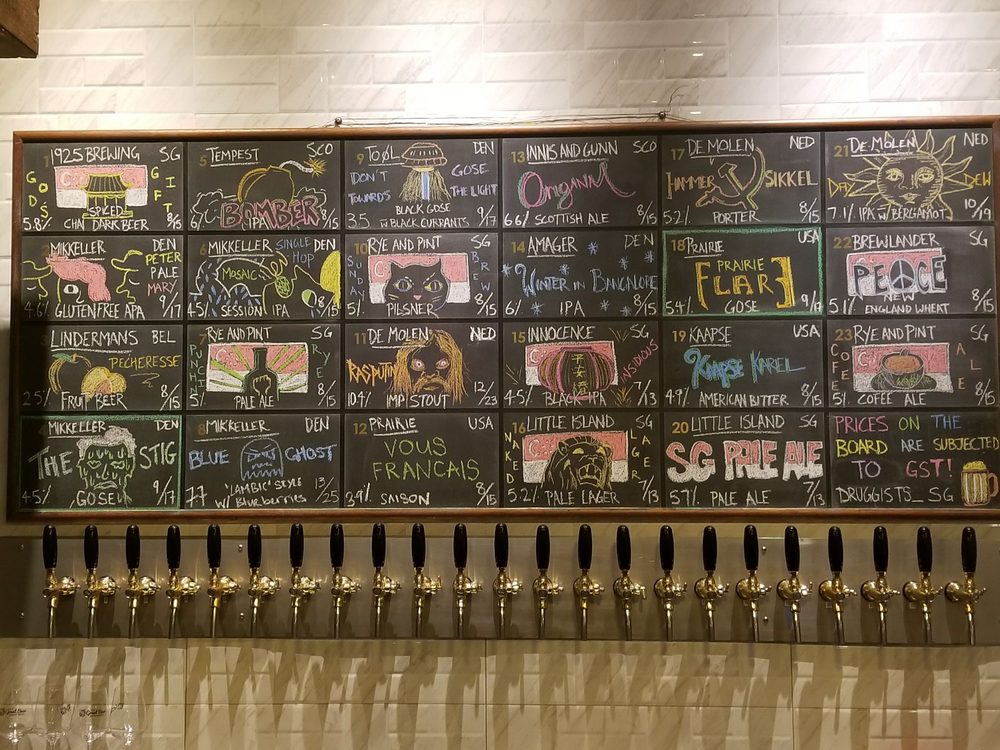 1 1925 BREWING SG
GODS GIFT
SPICED
5.8% CHAI DARK BEER 8/15
5 TEMPEST SCO
BOMBER
6% IPA 8/15
9 TOØL DEN
DON'T GOSE
TOWARDS THE LIGHT
BLACK GOSE
3.5 W/ BLACK CURRANTS 9/17
13 INNIS AND GUNN SCO
6.6% SCOTTISH ALE 8/15
17 DE MOLEN NED
HAMMER SIKKEL
5.2% PORTER 8/15
21 DE MOLEN NED
DEW
7.1% IPA W/ BERGAMOT 10/19
2 MIKKELLER DEN
PETER
PALE
MARY
4.6% GLUTEN FREE APA 9/17
6 MIKKELLER SINGLE HOP DEN
MOSAIC
4.5% SESSION IPA 8/15
10 RYE AND PINT SG
SUNDAY BREW
5% PILSNER 8/15
14 AMAGER DEN
WINTER IN BANGALORE
6% IPA 8/15
18 PRAIRIE USA
PRAIRIE
FLAR
5.4% GOSE 9/17
22 BREWLANDER SG
PEACE
NEW
5.1% ENGLAND WHEAT 8/15
3 LINDERMANS BEL
PECHERESSE
2.5% FRUIT BEER 8/15
7 RYE AND PINT SG
PUNCH IT RYE
5% PALE ALE 8/15
11 DE MOLEN NED
RASPUTIN
10.4% IMP STOUT 12/23
15 INNOCENCE SG
INSIDIOUS
4.5% BLACK IPA 7/13
19 KAAPSE USA
KAAPSE KAREL
4.9% AMERICAN BITTER 8/15
23 RYE AND PINT SG
COFFEE ALE
5% COFEE ALE 8/15
4 MIKKELLER DEN
THE STIG
4.5% GOSE 9/17
8 MIKKELLER DEN
BLUE GHOST
"LAMBIC" STYLE
7.7 W/ BLUEBERRIES 13/25
12 PRAIRIE USA
VOUS
FRANCAIS
3.9% SAISON 8/15
16 LITTLE ISLAND SG
NAKED LAGER
5.2% PALE LAGER 7/13
20 LITTLE ISLAND SG
SG PALE ALE
5.7% PALE ALE 7/13
PRICES ON THE
BOARD ARE SUBJECTED
TO GST!
DRUGGISTS_SG